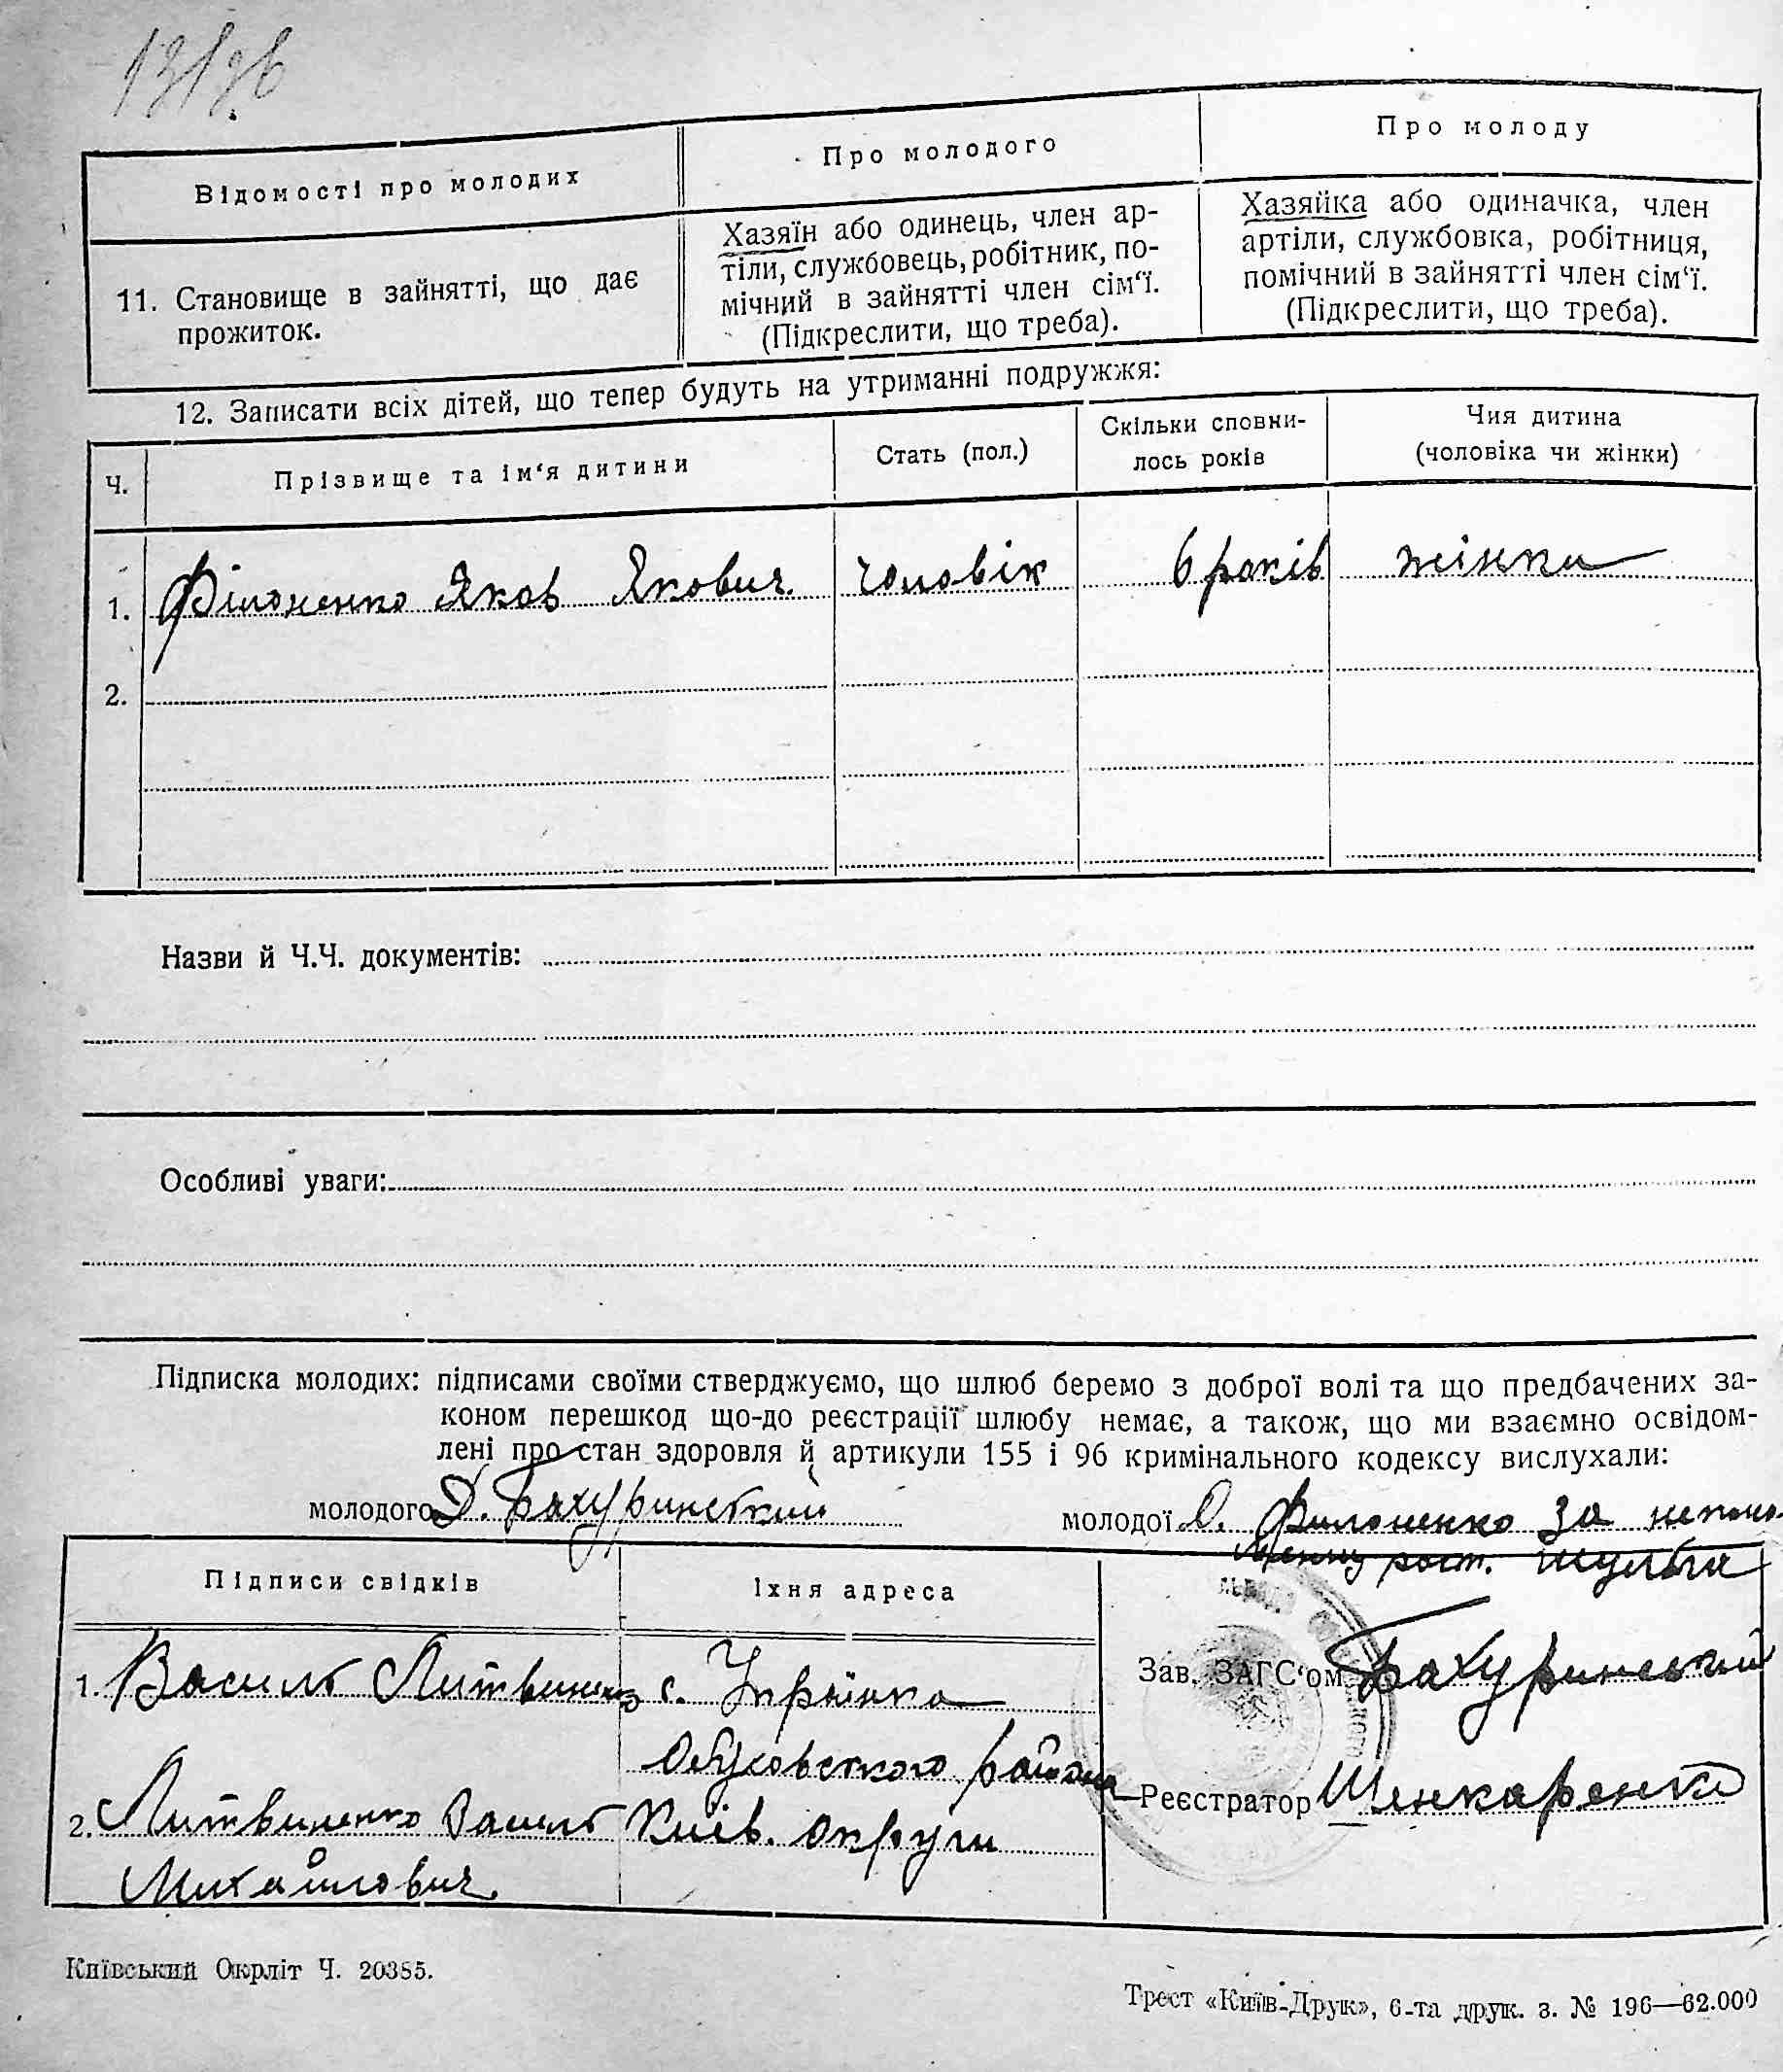 Відомості про молодих
Про молодого
Про молоду
11. Становище в зайнятті, що дає
прожиток.
Хазяїн або одинець, член ар-
тіли, службовець, робітник, по-
мічний в зайнятті член сім‘ї.
(Підкреслити, що треба).
Хазяйка або одиначка, член
артіли, службовка, робітниця,
помічний в зайнятті член сім‘ї.
(Підкреслити, що треба).
12. Записати всіх дітей, що тепер будуть на утриманні подружжя:
Ч.
Прізвище та ім‘я дитини
Стать (пол.)
Скільки сповни-
лось років
Чия дитина
(чоловіка чи жінки)
1. Філоненко Яков Якович. чоловік 6 років жінки
2.
Назви й Ч.Ч. документів:
Особливі уваги:
Підписка молодих: підписами своїми стверджуємо, що шлюб беремо з доброї волі та що предбачених за-
коном перешкод що-до реєстрації шлюбу немає, а також, що ми взаємно освідом-
лені про стан здоровля й артикули 155 і 96 кримінального кодексу вислухали:
молодого Д. Бахуринский
молодої О. Филоненко за
рост. Шульга
Підписи свідків
Їхня адреса
1. Василь Литвиненко
с.
Обуховского района
2. Литвиненко Василь
Київ. округи
Михайлович.
Зав. ЗАГС‘ом Бахуринський
Реєстратор Шенкаренко
Київський Окрліт Ч. 20385.
Трест «Київ-Друк», 6-та друк. з. № 196—62.000